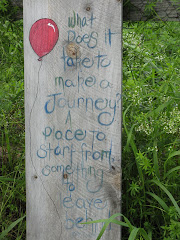 What
Does it
take to
make a
Journey?
A
place to
start from,
something
to
leave